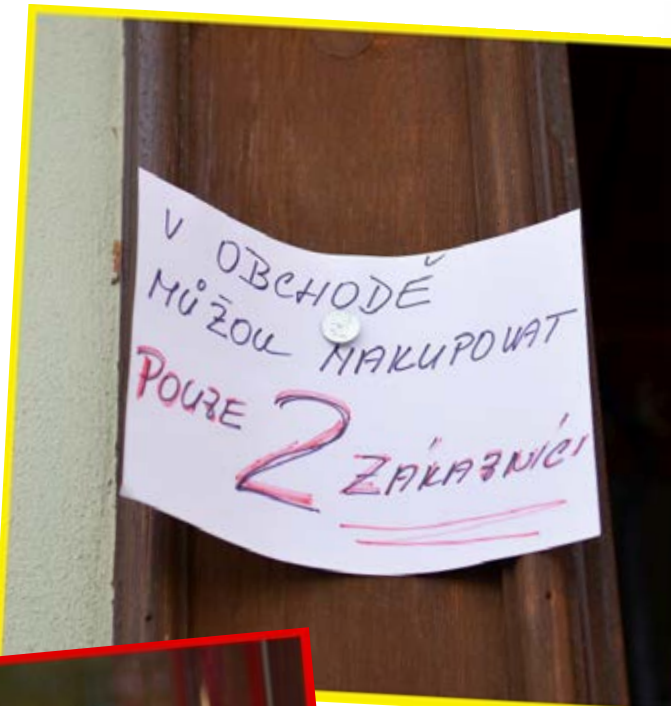 V OBCHODĚ
MŮŽOU NAKUPOVAT
POUZE 2 ZÁKAZNÍCI